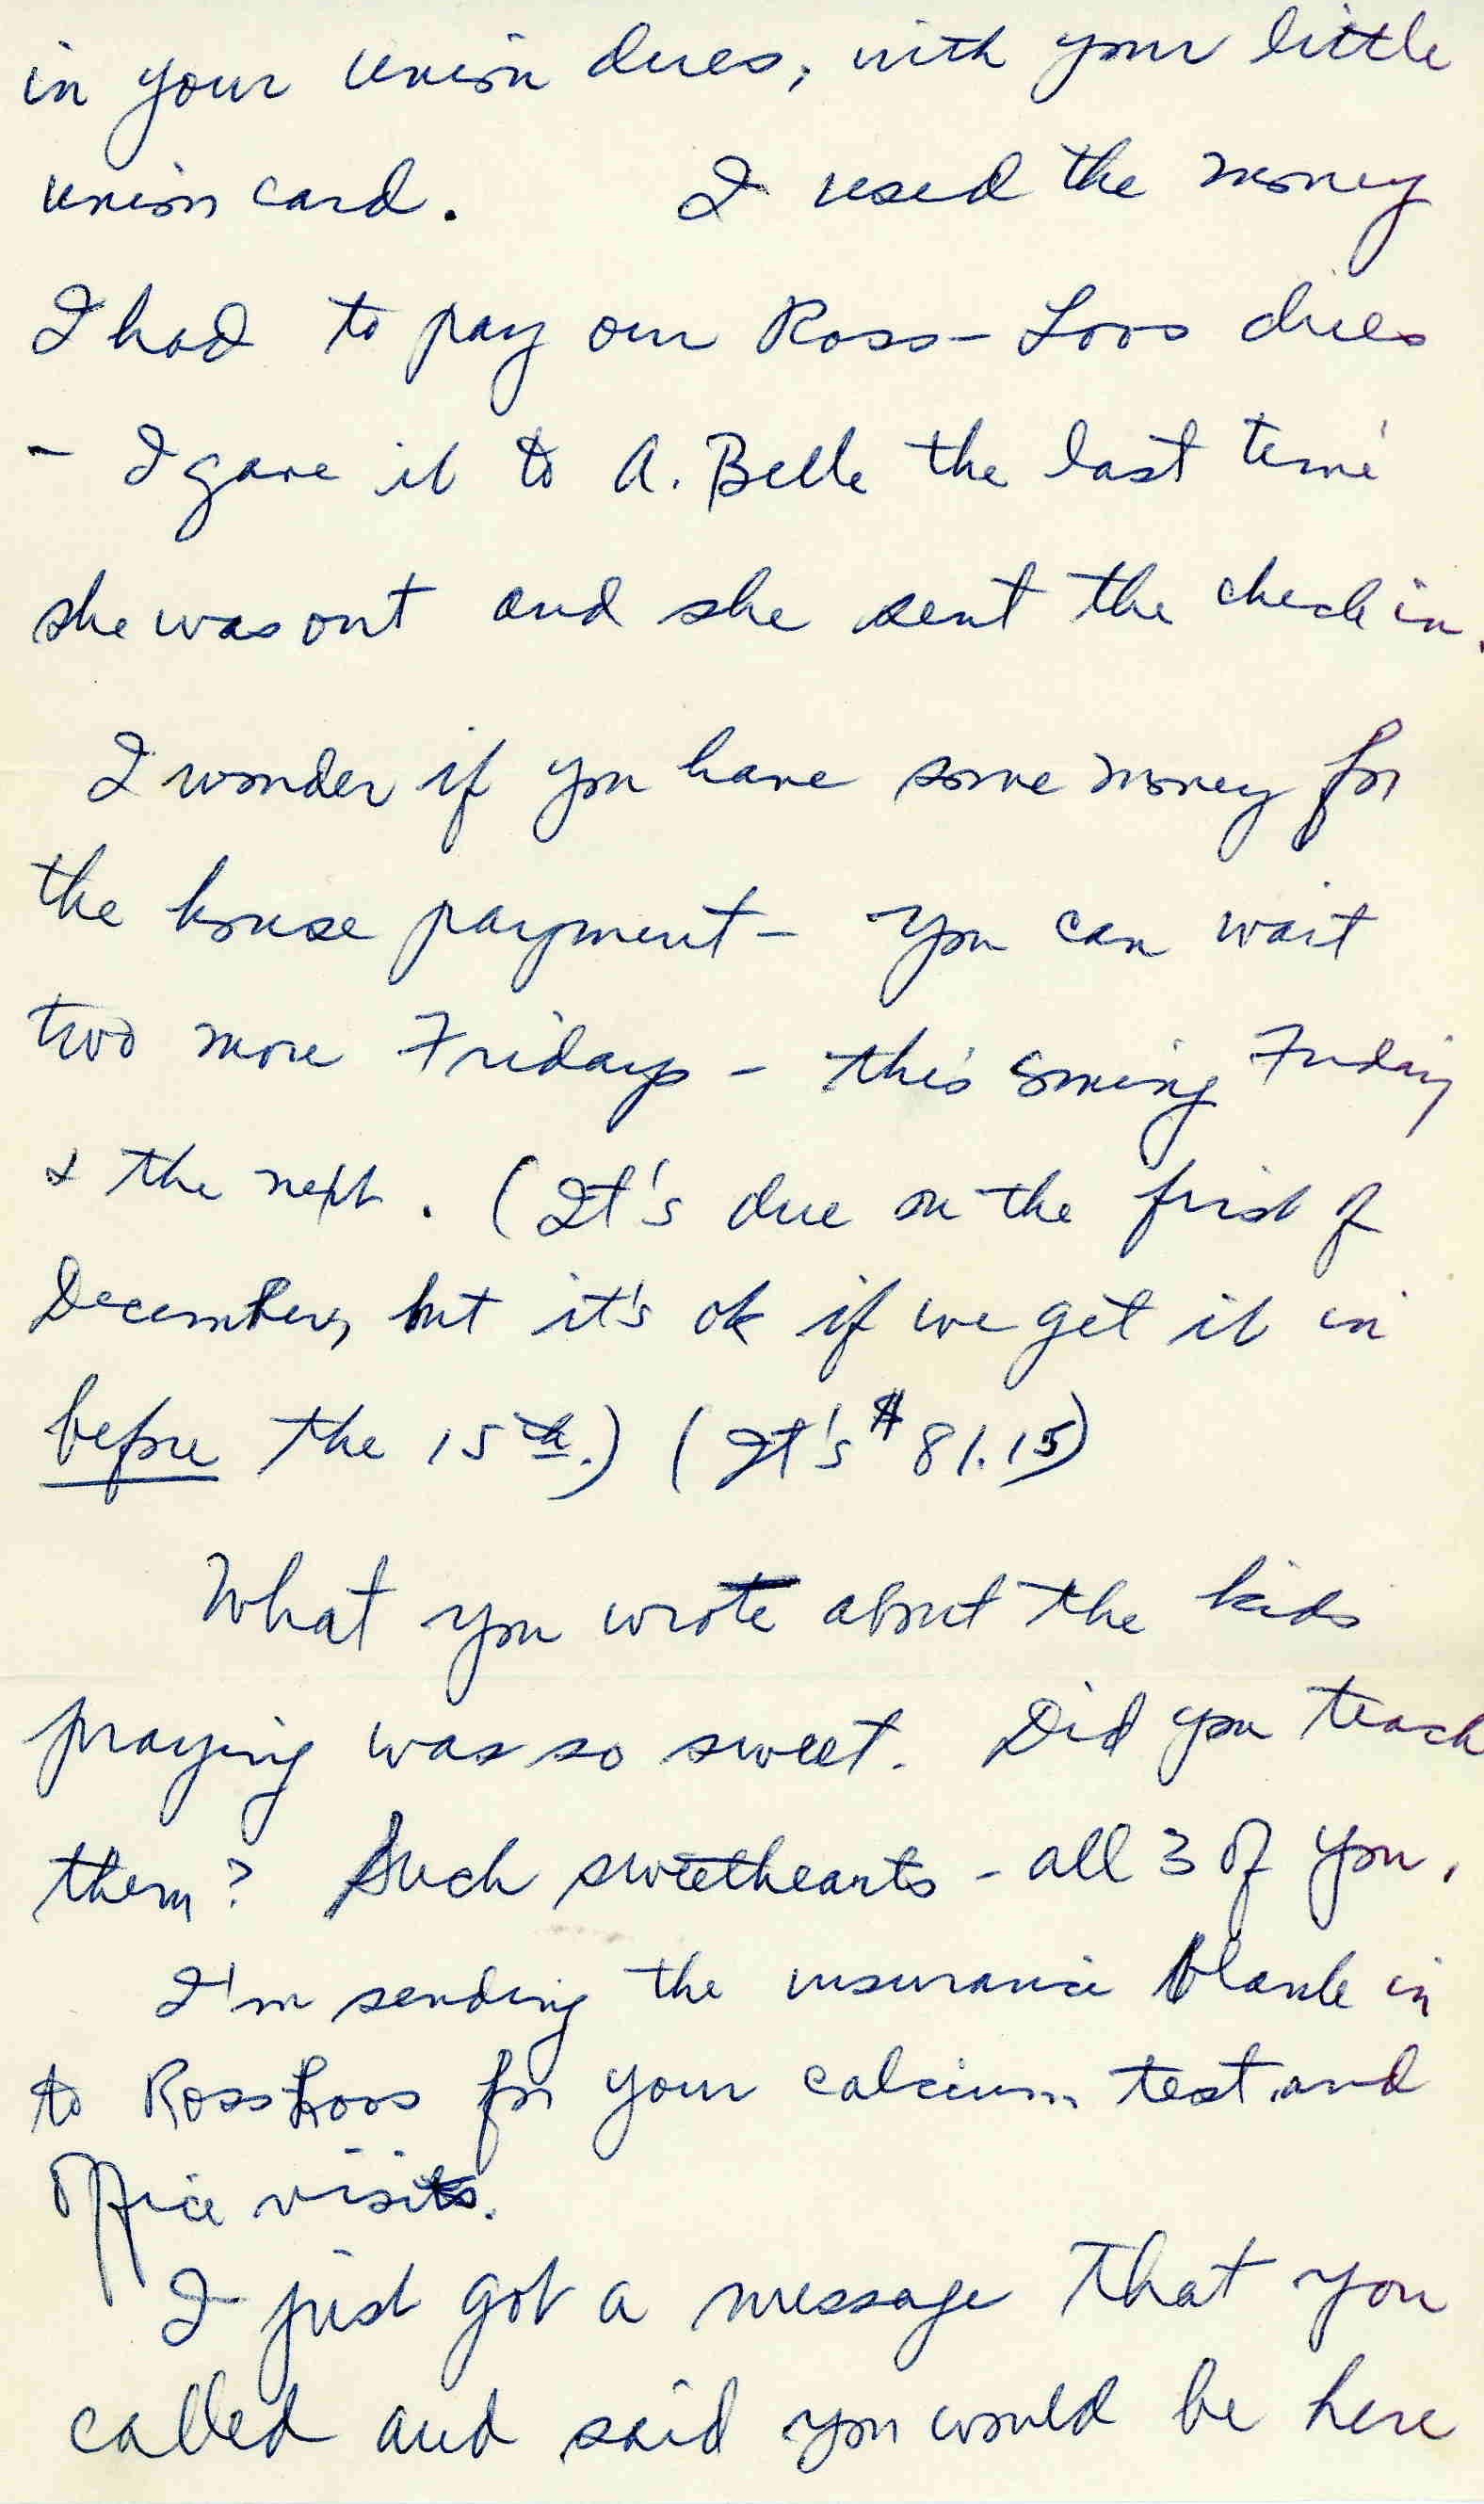 in your union dues, with your little
union card. I used the money
I had to pay our Ross-Loos dues
- I gave it to A. Belle the last time
she was out and she sent the check in.
I wonder if you have some money for
the house payment - you can wait
two more Fridays - this coming Friday
& the next. (It's due on the first of
December, but it's ok if we get it in
before the 15th.) (It's $81.15)
What you wrote about the kids
praying was so sweet. Did you teach
them? Such sweethearts - all 3 of you.
I'm sending the insurance blank in
to Ross Loos for your calcium test and
office visits.
I just got a message that you
called and said you would be here